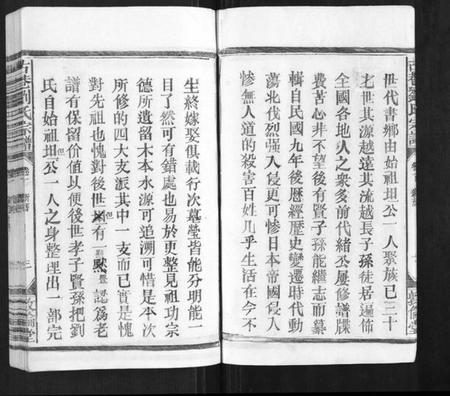 世代書鄉由始祖坦公一人聚族已三十
七世其源越遠其流越長子孫徒居遍佈
全國各地人之衆多前代緒公屢修譜牒
費苦心非不望後有賢子孫能繼志而纂
輯自民國九年後歷經歷史變遷時代動
蕩北伐烈强入侵更可惨日本帝國侵人
惨無人道的殺害百姓几乎生活在今不
生終嫁娶俱載行次墓塋皆能分明能一
目了然可有錯處也易於更整見祖功宗
德所遺留木本水源可追溯可惜是本次
所修的四大支派其中一支而已實是愧
對先祖也愧對後世但有一點認為老
譜有保留价值以便後世孝子賢孫把劉
氏自始祖坦公但一人之身整理出一部完
古巷劉氏宗譜